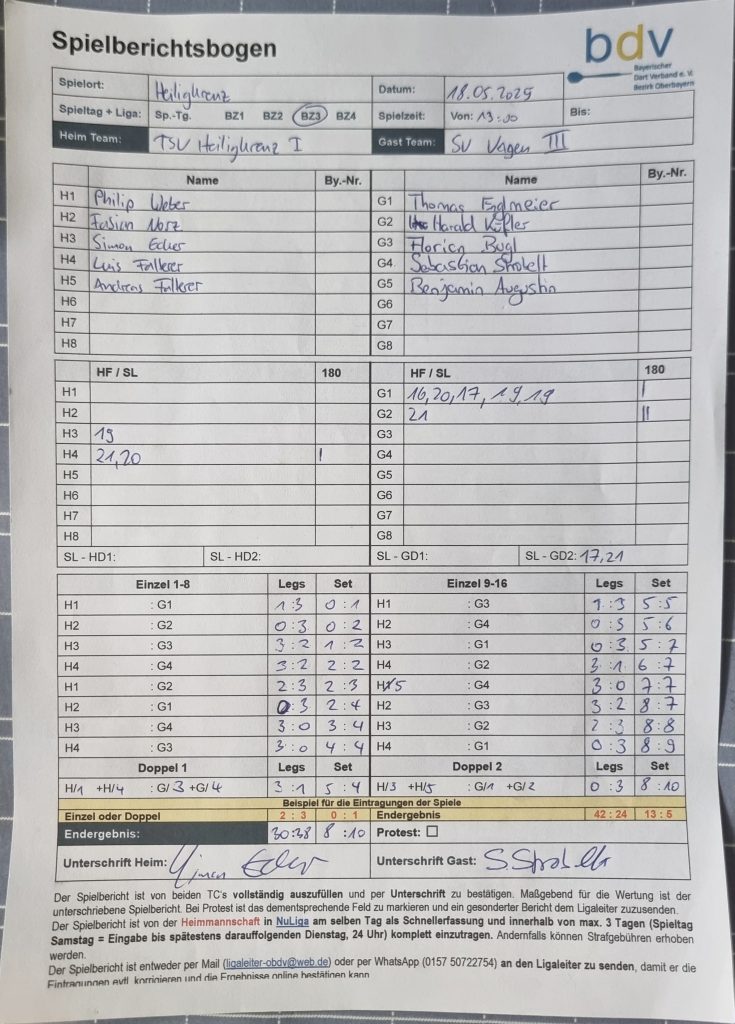 Spielberichtsbogen
bdv
Bayerischer
Dart Verband e. V.
Bezirk Oberbayern
Spielort: Heiligkreuz Datum: 18.05.2025
Spieltag + Liga: Sp.-Tg. BZ1 BZ2 BZ3 BZ4 Spielzeit: Von: 13:00 Bis:
Heim Team: TSV Heiligkreuz I Gast Team: SV Vagen III
Name By.-Nr. Name By.-Nr.
H1 Philip Weber G1 Thomas Englmeier
H2 Fabian Norz G2 Harald Küfler
H3 Simon Ecker G3 Florian Bugl
H4 Luis Fallerer G4 Sebastian Strobelt
H5 Andreas Fallerer G5 Benjamin Augustin
H6 G6
H7 G7
H8 G8
HF / SL 180 HF / SL 180
H1 G1 16,20,17,19,19 I
H2 G2 21 II
H3 19 G3
H4 21,20 I G4
H5 G5
H6 G6
H7 G7
H8 G8
SL - HD1: SL - HD2: SL - GD1: SL - GD2: 17,21
Einzel 1-8 Legs Set Einzel 9-16 Legs Set
H1 : G1 1:3 0:1 H1 : G3 1:3 5:5
H2 : G2 0:3 0:2 H2 : G4 0:3 5:6
H3 : G3 3:2 1:2 H3 : G1 0:3 5:7
H4 : G4 3:2 2:2 H4 : G2 3:1 6:7
H1 : G2 2:3 2:3 H5 : G4 3:0 7:7
H2 : G1 0:3 2:4 H2 : G3 3:2 8:7
H3 : G4 3:0 3:4 H3 : G2 2:3 8:8
H4 : G3 3:0 4:4 H4 : G1 0:3 8:9
Doppel 1 Legs Set Doppel 2 Legs Set
H/1 +H/4 : G/3 +G/4 3:1 5:4 H/3 +H/5 : G/1 +G/2 0:3 8:10
Beispiel für die Eintragungen der Spiele
Einzel oder Doppel 2 : 3 0 : 1 Endergebnis 42 : 24 13 : 5
Endergebnis: 30:38 8:10 Protest: ☐
Unterschrift Heim: Simon Ecker Unterschrift Gast: S Strobelt
Der Spielbericht ist von beiden TC's vollständig auszufüllen und per Unterschrift zu bestätigen. Maßgebend für die Wertung ist der
unterschriebene Spielbericht. Bei Protest ist das dementsprechende Feld zu markieren und ein gesonderter Bericht dem Ligaleiter zuzusenden.
Der Spielbericht ist von der Heimmannschaft in NuLiga am selben Tag als Schnellerfassung und innerhalb von max. 3 Tagen (Spieltag
Samstag = Eingabe bis spätestens darauffolgenden Dienstag, 24 Uhr) komplett einzutragen. Andernfalls können Strafgebühren erhoben
werden.
Der Spielbericht ist entweder per Mail (ligaleiter-obdv@web.de) oder per WhatsApp (0157 50722754) an den Ligaleiter zu senden, damit er die
Eintragungen evtl. korrigieren und die Ergebnisse online bestätigen kann